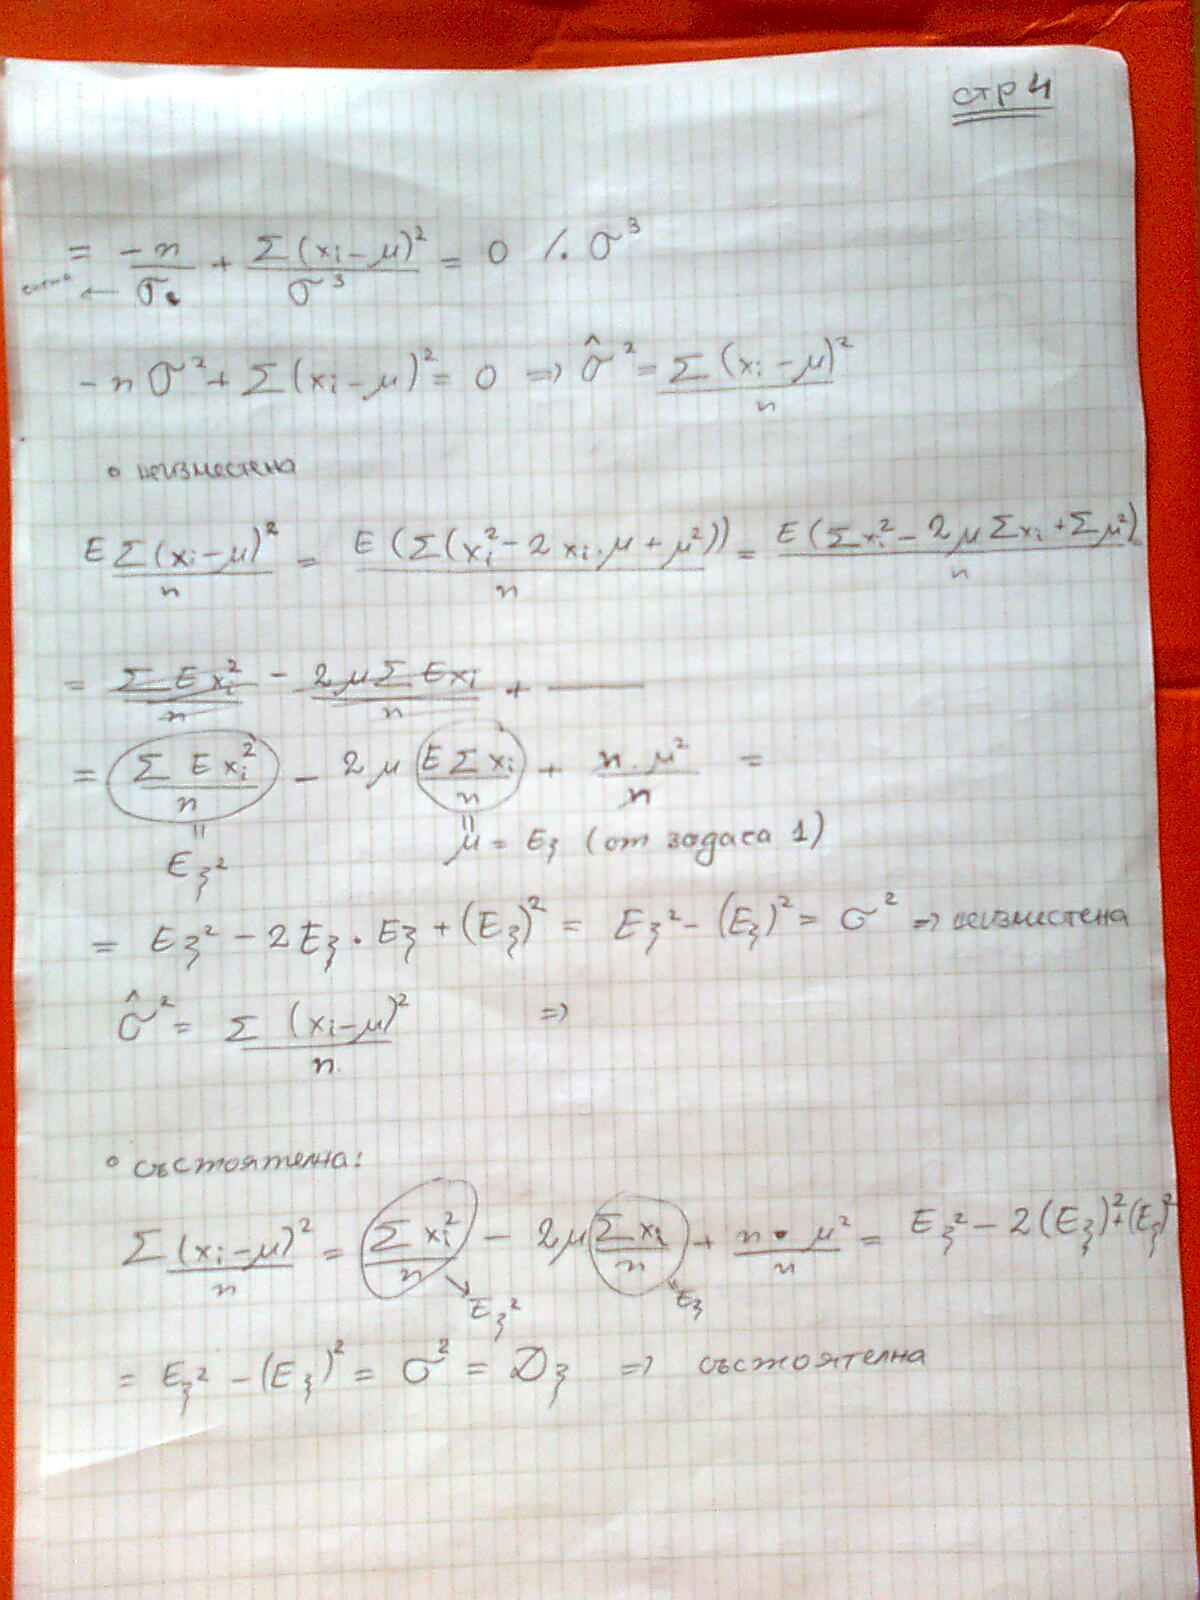 стр 4
= -n/σ + Σ(xᵢ-μ)²/σ³ = 0 /. σ³
←
-nσ² + Σ(xᵢ-μ)² = 0 => σ̂² = Σ(xᵢ-μ)²/n
• неизместена
E Σ(xᵢ-μ)²/n = E(Σ(xᵢ²-2xᵢ.μ+μ²))/n = E(Σxᵢ²-2μΣxᵢ+Σμ²)/n
= ΣExᵢ²/n - 2μΣExᵢ/n + —
= ΣExᵢ²/n - 2μ EΣxᵢ/n + n.μ²/n =
= =
Eξ² μ = Eξ (от задаса 1)
= Eξ² - 2Eξ.Eξ + (Eξ)² = Eξ² - (Eξ)² = σ² => неизместена
σ̂² = Σ(xᵢ-μ)²/n =>
• състоятелна:
Σ(xᵢ-μ)²/n = Σxᵢ²/n - 2μ Σxᵢ/n + n.μ²/n = Eξ² - 2(Eξ)² + (Eξ)²
→ Eξ² = Eξ
= Eξ² - (Eξ)² = σ² = Dξ => състоятелна